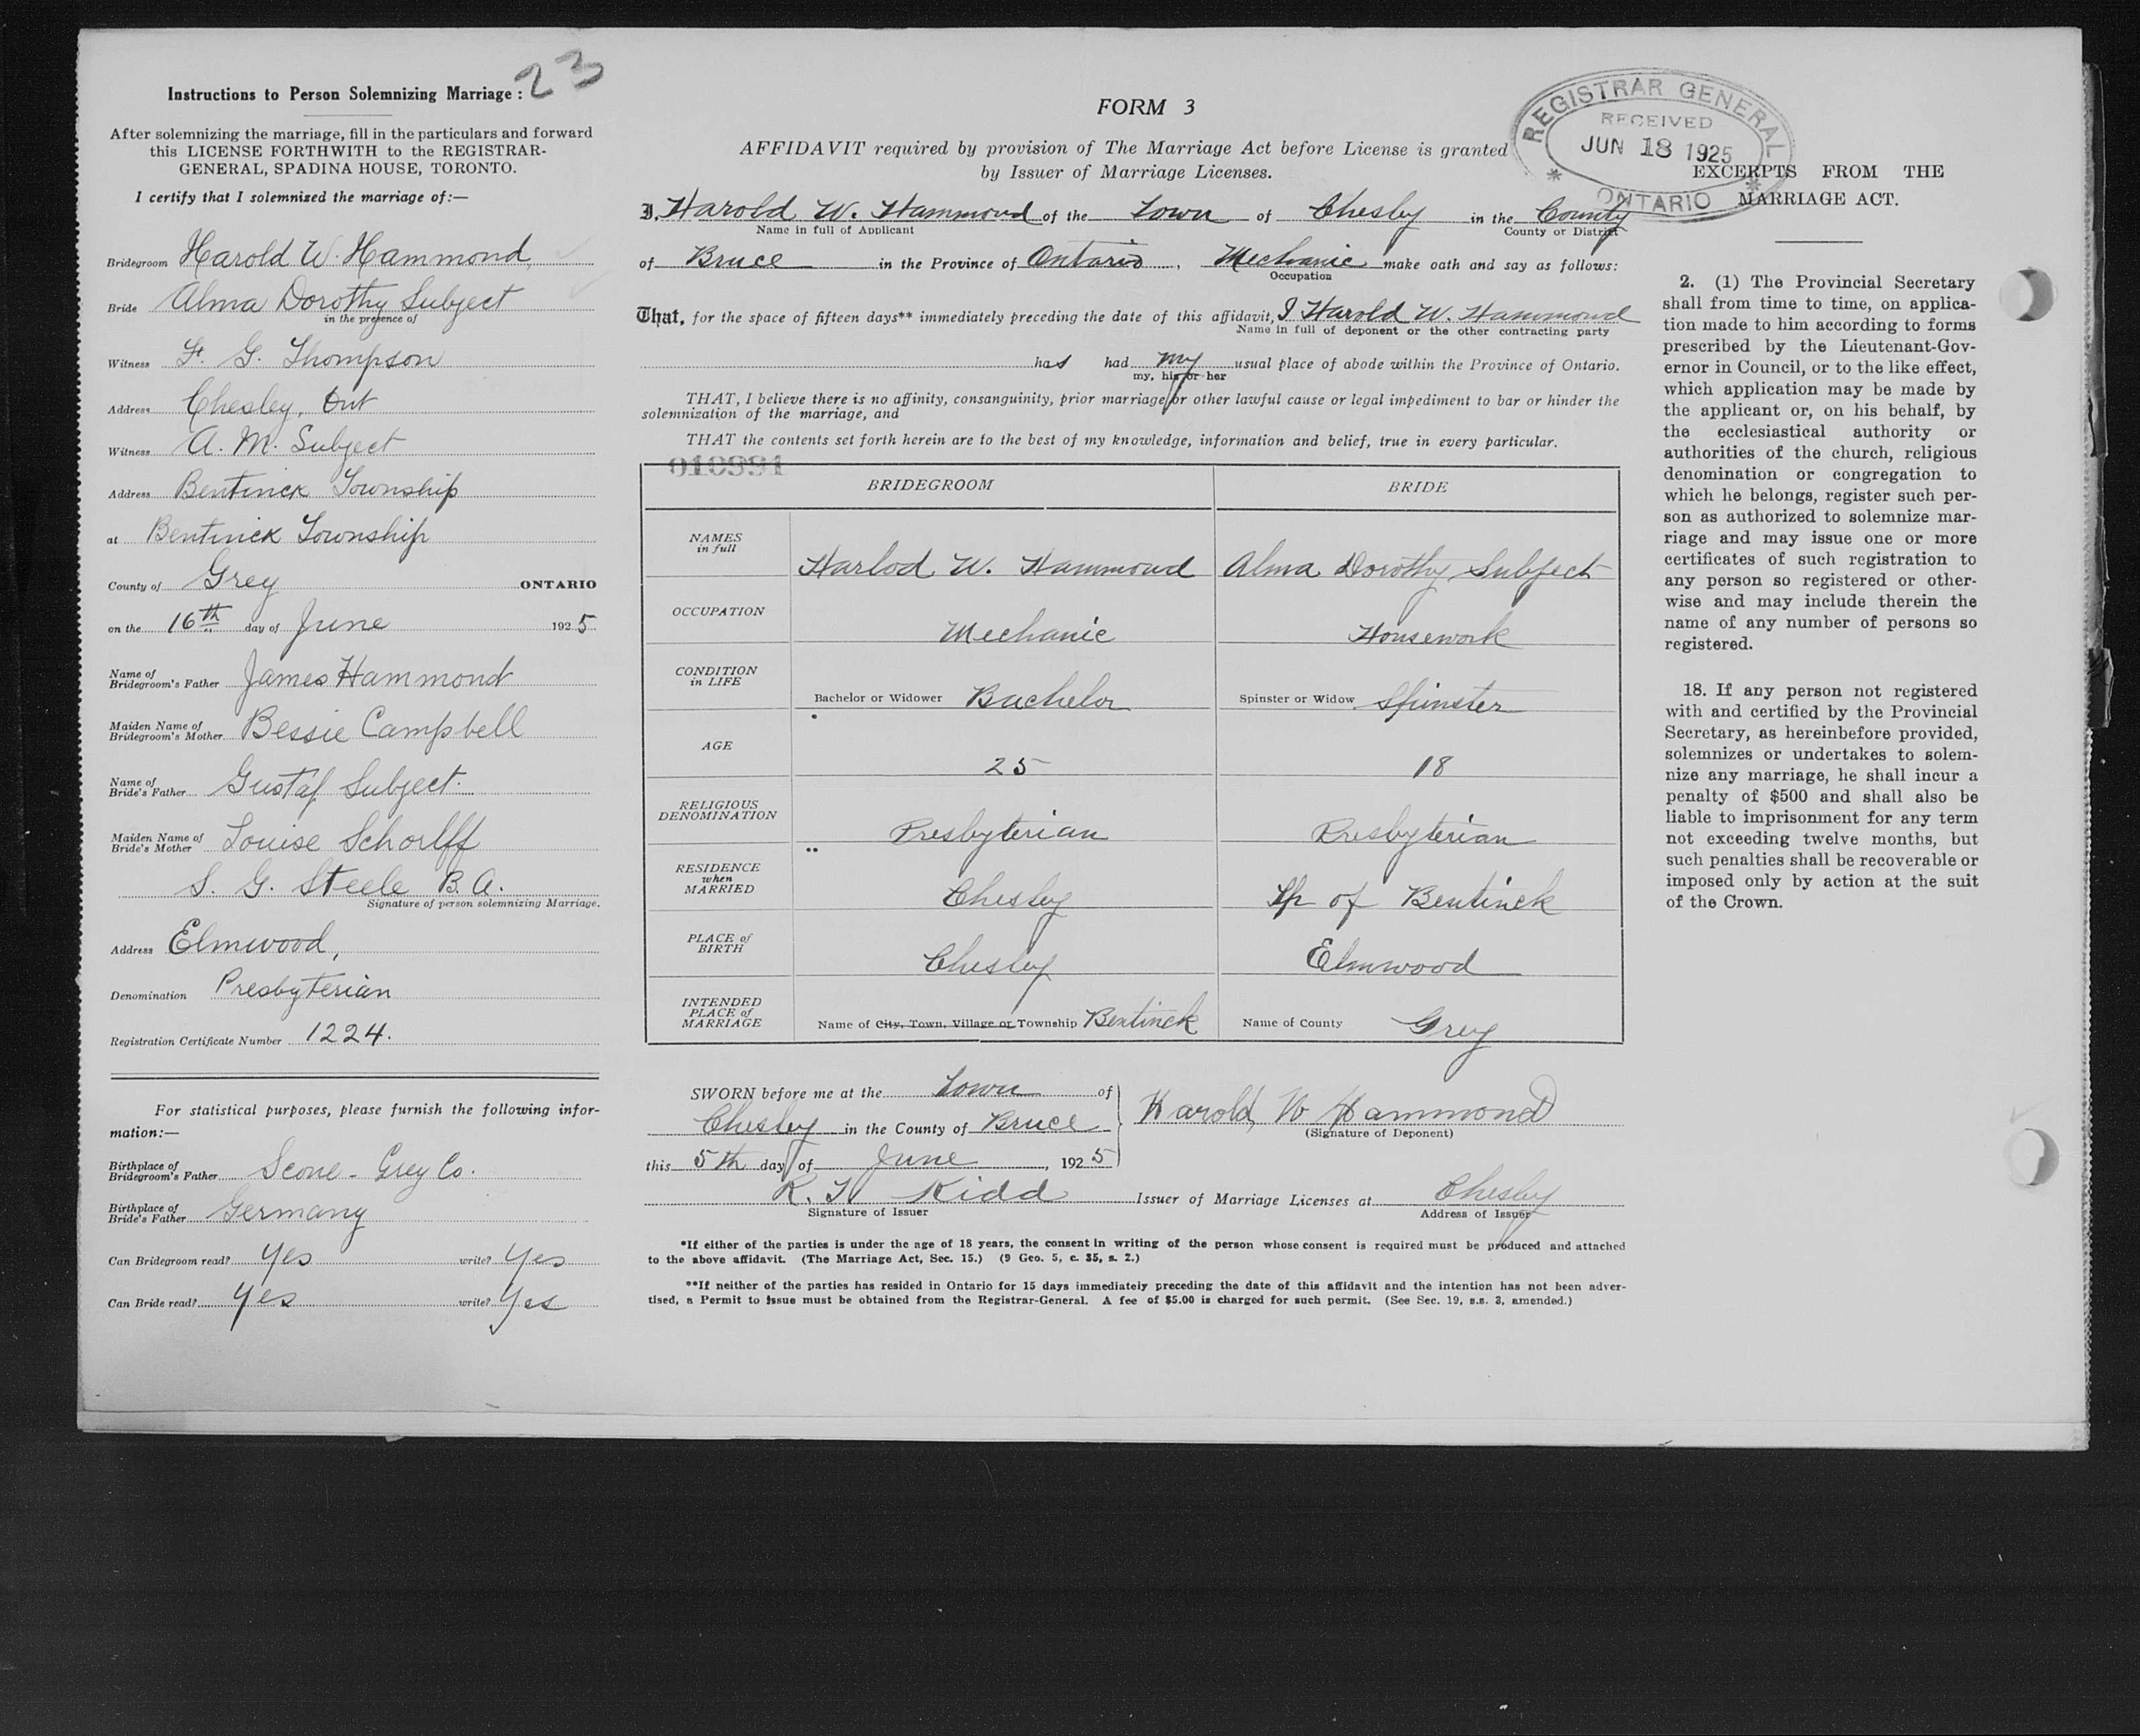 Instructions to Person Solemnizing Marriage :
23
After solemnizing the marriage, fill in the particulars and forward
this LICENSE FORTHWITH to the REGISTRAR-
GENERAL, SPADINA HOUSE, TORONTO.
I certify that I solemnized the marriage of:—
Bridegroom Harold W. Hammond
Bride Alma Dorothy Subject
in the presence of
Witness F. G. Thompson
Address Chesley, Ont
Witness A. M. Subject
Address Bentinck Township
at Bentinck Township
County of Grey ONTARIO
on the 16th day of June 1925
Name of
Bridegroom's Father James Hammond
Maiden Name of
Bridegroom's Mother Bessie Campbell
Name of
Bride's Father Gustaf Subject.
Maiden Name of
Bride's Mother Louise Schorlff
S. G. Steele B.A.
Signature of person solemnizing Marriage.
Address Elmwood,
Denomination Presbyterian
Registration Certificate Number 1224.
For statistical purposes, please furnish the following infor-
mation:—
Birthplace of
Bridegroom's Father Scone - Grey Co.
Birthplace of
Bride's Father Germany
Can Bridegroom read? Yes write? Yes
Can Bride read? Yes write? Yes
FORM 3
AFFIDAVIT required by provision of The Marriage Act before License is granted
by Issuer of Marriage Licenses.
I, Harold W. Hammond of the Town of Chesley in the County
Name in full of Applicant County or District
of Bruce in the Province of Ontario, Mechanic make oath and say as follows:
Occupation
That, for the space of fifteen days** immediately preceding the date of this affidavit, I Harold W. Hammond
Name in full of deponent or the other contracting party
has had my usual place of abode within the Province of Ontario.
my, his or her
THAT, I believe there is no affinity, consanguinity, prior marriage or other lawful cause or legal impediment to bar or hinder the
solemnization of the marriage, and
THAT the contents set forth herein are to the best of my knowledge, information and belief, true in every particular.
010991
BRIDEGROOM BRIDE
NAMES
in full
Harlod W. Hammond Alma Dorothy Subject
OCCUPATION
Mechanic Housework
CONDITION
in LIFE
Bachelor or Widower Bachelor Spinster or Widow Spinster
AGE
25 18
RELIGIOUS
DENOMINATION
Presbyterian Presbyterian
RESIDENCE
when
MARRIED
Chesley Tp of Bentinck
PLACE of
BIRTH
Chesley Elmwood
INTENDED
PLACE of
MARRIAGE
Name of City, Town, Village or Township Bentinck Name of County Grey
SWORN before me at the Town of
Chesley in the County of Bruce
this 5th day of June, 1925
Harold W Hammond
(Signature of Deponent)
R. J. Kidd Issuer of Marriage Licenses at Chesley
Signature of Issuer Address of Issuer
*If either of the parties is under the age of 18 years, the consent in writing of the person whose consent is required must be produced and attached
to the above affidavit. (The Marriage Act, Sec. 15.) (9 Geo. 5, c. 35, s. 2.)
**If neither of the parties has resided in Ontario for 15 days immediately preceding the date of this affidavit and the intention has not been adver-
tised, a Permit to Issue must be obtained from the Registrar-General. A fee of $5.00 is charged for such permit. (See Sec. 19, s.s. 3, amended.)
REGISTRAR GENERAL
RECEIVED
JUN 18 1925
ONTARIO
EXCERPTS FROM THE
MARRIAGE ACT.
2. (1) The Provincial Secretary
shall from time to time, on applica-
tion made to him according to forms
prescribed by the Lieutenant-Gov-
ernor in Council, or to the like effect,
which application may be made by
the applicant or, on his behalf, by
the ecclesiastical authority or
authorities of the church, religious
denomination or congregation to
which he belongs, register such per-
son as authorized to solemnize mar-
riage and may issue one or more
certificates of such registration to
any person so registered or other-
wise and may include therein the
name of any number of persons so
registered.
18. If any person not registered
with and certified by the Provincial
Secretary, as hereinbefore provided,
solemnizes or undertakes to solem-
nize any marriage, he shall incur a
penalty of $500 and shall also be
liable to imprisonment for any term
not exceeding twelve months, but
such penalties shall be recoverable or
imposed only by action at the suit
of the Crown.